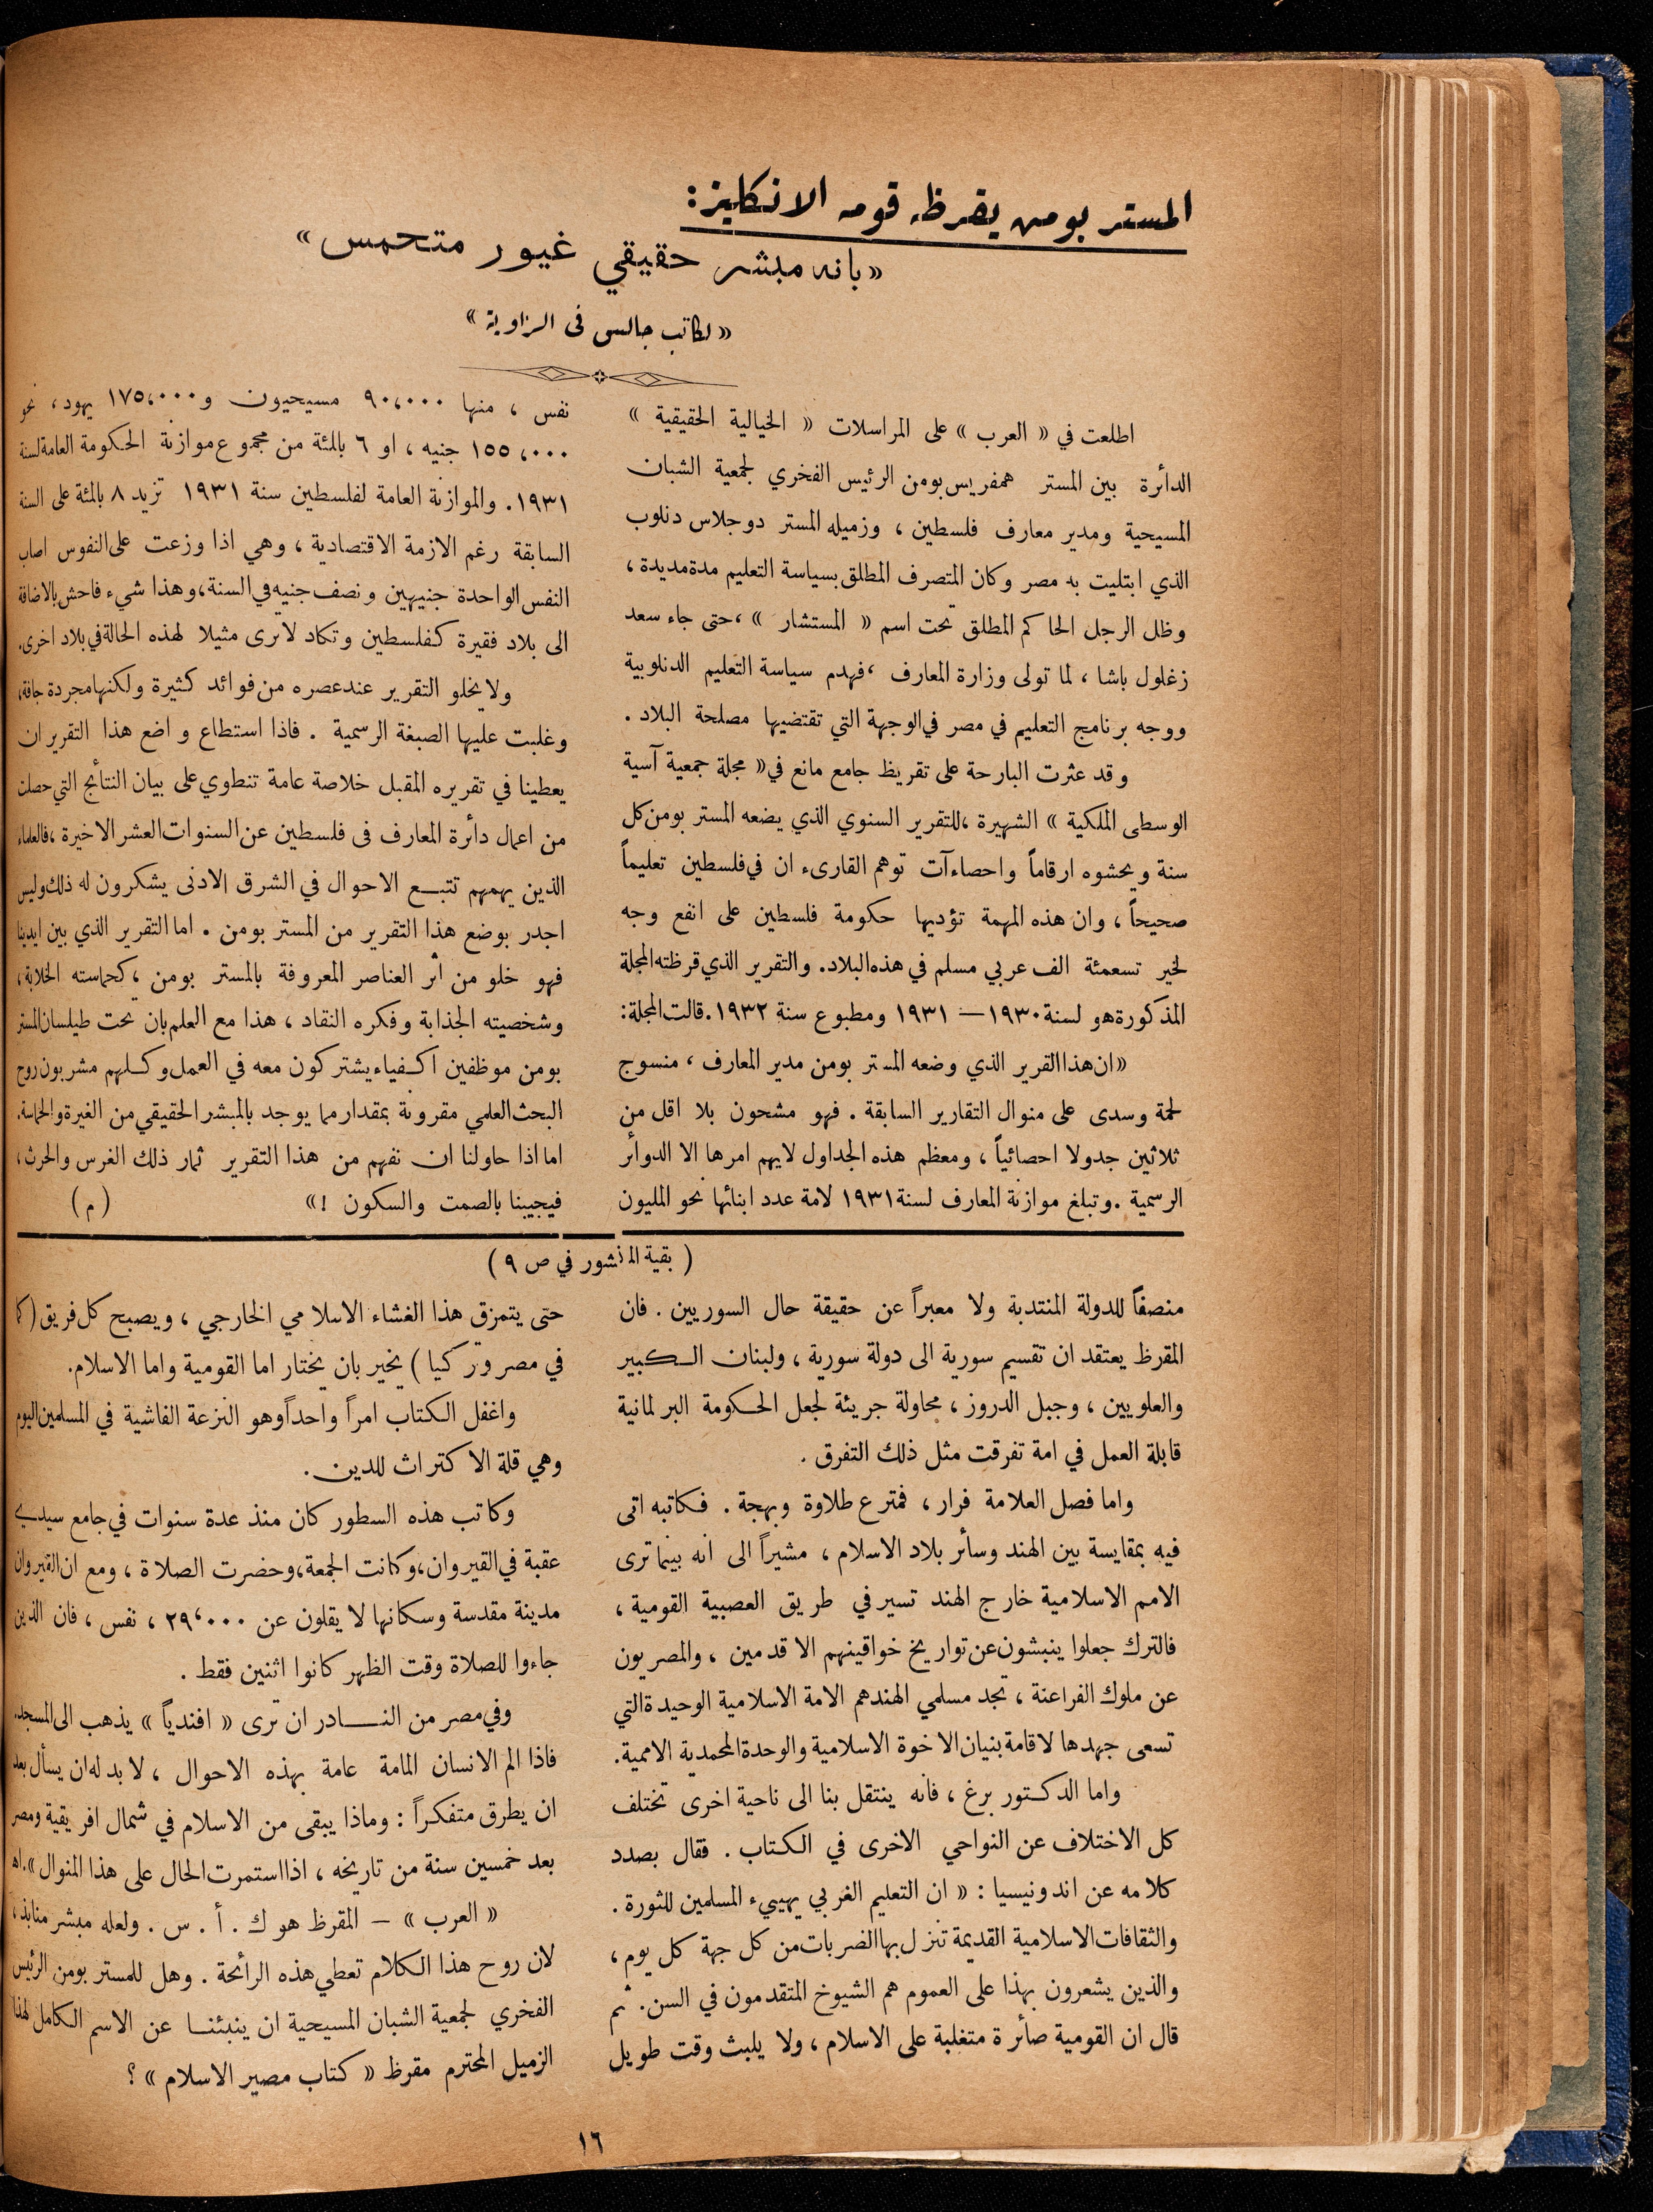 المستر بومن يقرظه قومه الانكليز:
«بانه مبشر حقيقي غيور متحمس»
«لكاتب جالس في الزاوية»
اطلعت في «العرب» على المراسلات «الخيالية الحقيقية»
الدائرة بين المستر همفريس بومن الرئيس الفخري لجمعية الشبان
المسيحية ومدير معارف فلسطين ، وزميله المستر دوجلاس دنلوب
الذي ابتليت به مصر وكان المتصرف المطلق بسياسة التعليم مدة مديدة ،
وظل الرجل الحاكم المطلق تحت اسم « المستشار » ، حتى جاء سعد
زغلول باشا ، لما تولى وزارة المعارف ، فهدم سياسة التعليم الدنلوبية
ووجه برنامج التعليم في مصر في الوجهة التي تقتضيها مصلحة البلاد .
وقد عثرت البارحة على تقريظ جامع مانع في « مجلة جمعية آسية
الوسطى الملكية » الشهيرة ، للتقرير السنوي الذي يضعه المستر بومن كل
سنة ويحشوه ارقاماً واحصاءآت توهم القارىء ان في فلسطين تعليماً
صحيحاً ، وان هذه المهمة تؤديها حكومة فلسطين على انفع وجه
لخير تسعمئة الف عربي مسلم في هذه البلاد. والتقرير الذي قرظته المجلة
المذكورة هو لسنة ١٩٣٠ — ١٩٣١ ومطبوع سنة ١٩٣٢. قالت المجلة:
«ان هذا القرير الذي وضعه المستر بومن مدير المعارف ، منسوج
لحمة وسدى على منوال التقارير السابقة . فهو مشحون بلا اقل من
ثلاثين جدولا احصائياً ، ومعظم هذه الجداول لايهم امرها الا الدوائر
الرسمية . وتبلغ موازنة المعارف لسنة ١٩٣١ لامة عدد ابنائها نحو المليون
نفس ، منها ٩٠،٠٠٠ مسيحيون و١٧٥،٠٠٠ يهود ، نحو
١٥٥،٠٠٠ جنيه ، او ٦ بالمئة من مجموع موازنة الحكومة العامة لسنة
١٩٣١. والموازنة العامة لفلسطين سنة ١٩٣١ تزيد ٨ بالمئة على السنة
السابقة رغم الازمة الاقتصادية ، وهي اذا وزعت على النفوس اصاب
النفس الواحدة جنيهين ونصف جنيه في السنة ، وهذا شيء فاحش بالاضافة
الى بلاد فقيرة كفلسطين وتكاد لاترى مثيلا لهذه الحالة في بلاد اخرى.
ولا يخلو التقرير عند عصره من فوائد كثيرة ولكنها مجردة جافة،
وغلبت عليها الصبغة الرسمية . فاذا استطاع واضع هذا التقرير ان
يعطينا في تقريره المقبل خلاصة عامة تنطوي على بيان النتائج التي حصلت
من اعمال دائرة المعارف فى فلسطين عن السنوات العشر الاخيرة ، فالعلماء
الذين يهمهم تتبع الاحوال في الشرق الادنى يشكرون له ذلك وليس
اجدر بوضع هذا التقرير من المستر بومن . اما التقرير الذي بين ايدينا
فهو خلو من اثر العناصر المعروفة بالمستر بومن ، كحماسته الخلابة ،
وشخصيته الجذابة وفكره النقاد ، هذا مع العلم بان تحت طيلسان المستر
بومن موظفين اكفياء يشتركون معه في العمل وكلهم مشربون روح
البحث العلمي مقرونة بمقدار مما يوجد بالمبشر الحقيقي من الغيرة والحماسة.
اما اذا حاولنا ان نفهم من هذا التقرير ثمار ذلك الغرس والحرث ،
فيجيبنا بالصمت والسكون !» (م)
( بقية المنشور في ص ٩ )
منصفاً للدولة المنتدبة ولا معبراً عن حقيقة حال السوريين . فان
المقرظ يعتقد ان تقسيم سورية الى دولة سورية ، ولبنان الكبير
والعلويين ، وجبل الدروز ، محاولة جريئة لجعل الحكومة البرلمانية
قابلة العمل في امة تفرقت مثل ذلك التفرق .
واما فصل العلامة فرار ، فمترع طلاوة وبهجة . فكاتبه اتى
فيه بمقايسة بين الهند وسائر بلاد الاسلام ، مشيراً الى انه بينما ترى
الامم الاسلامية خارج الهند تسير في طريق العصبية القومية ،
فالترك جعلوا ينبشون عن تواريخ خواقينهم الاقدمين ، والمصريون
عن ملوك الفراعنة ، تجد مسلمي الهند هم الامة الاسلامية الوحيدة التي
تسعى جهدها لاقامة بنيان الاخوة الاسلامية والوحدة المحمدية الاممية.
واما الدكتور برغ ، فانه ينتقل بنا الى ناحية اخرى تختلف
كل الاختلاف عن النواحي الاخرى في الكتاب . فقال بصدد
كلامه عن اندونيسيا : « ان التعليم الغربي يهيىء المسلمين للثورة .
والثقافات الاسلامية القديمة تنزل بها الضربات من كل جهة كل يوم ،
والذين يشعرون بهذا على العموم هم الشيوخ المتقدمون في السن. ثم
قال ان القومية صائرة متغلبة على الاسلام ، ولا يلبث وقت طويل
حتى يتمزق هذا الغشاء الاسلامي الخارجي ، ويصبح كل فريق (كما
في مصر وتركيا ) يخير بان يختار اما القومية واما الاسلام.
واغفل الكتاب امراً واحداً وهو النزعة الفاشية في المسلمين اليوم
وهي قلة الاكتراث للدين .
وكاتب هذه السطور كان منذ عدة سنوات في جامع سيدي
عقبة في القيروان ، وكانت الجمعة ، وحضرت الصلاة ، ومع ان القيروان
مدينة مقدسة وسكانها لا يقلون عن ٢٩،٠٠٠ ، نفس ، فان الذين
جاءوا للصلاة وقت الظهر كانوا اثنين فقط .
وفي مصر من النادر ان ترى « افندياً » يذهب الى المسجد،
فاذا الم الانسان المامة عامة بهذه الاحوال ، لا بد له ان يسأل بعد
ان يطرق متفكراً : وماذا يبقى من الاسلام في شمال افريقية ومصر
بعد خمسين سنة من تاريخه ، اذا استمرت الحال على هذا المنوال». اه
« العرب » — المقرظ هو ك . أ . س . ولعله مبشر منابذ ،
لان روح هذا الكلام تعطي هذه الرائحة . وهل للمستر بومن الرئيس
الفخري لجمعية الشبان المسيحية ان ينبئنا عن الاسم الكامل لهذا
الزميل المحترم مقرظ « كتاب مصير الاسلام » ؟
١٦